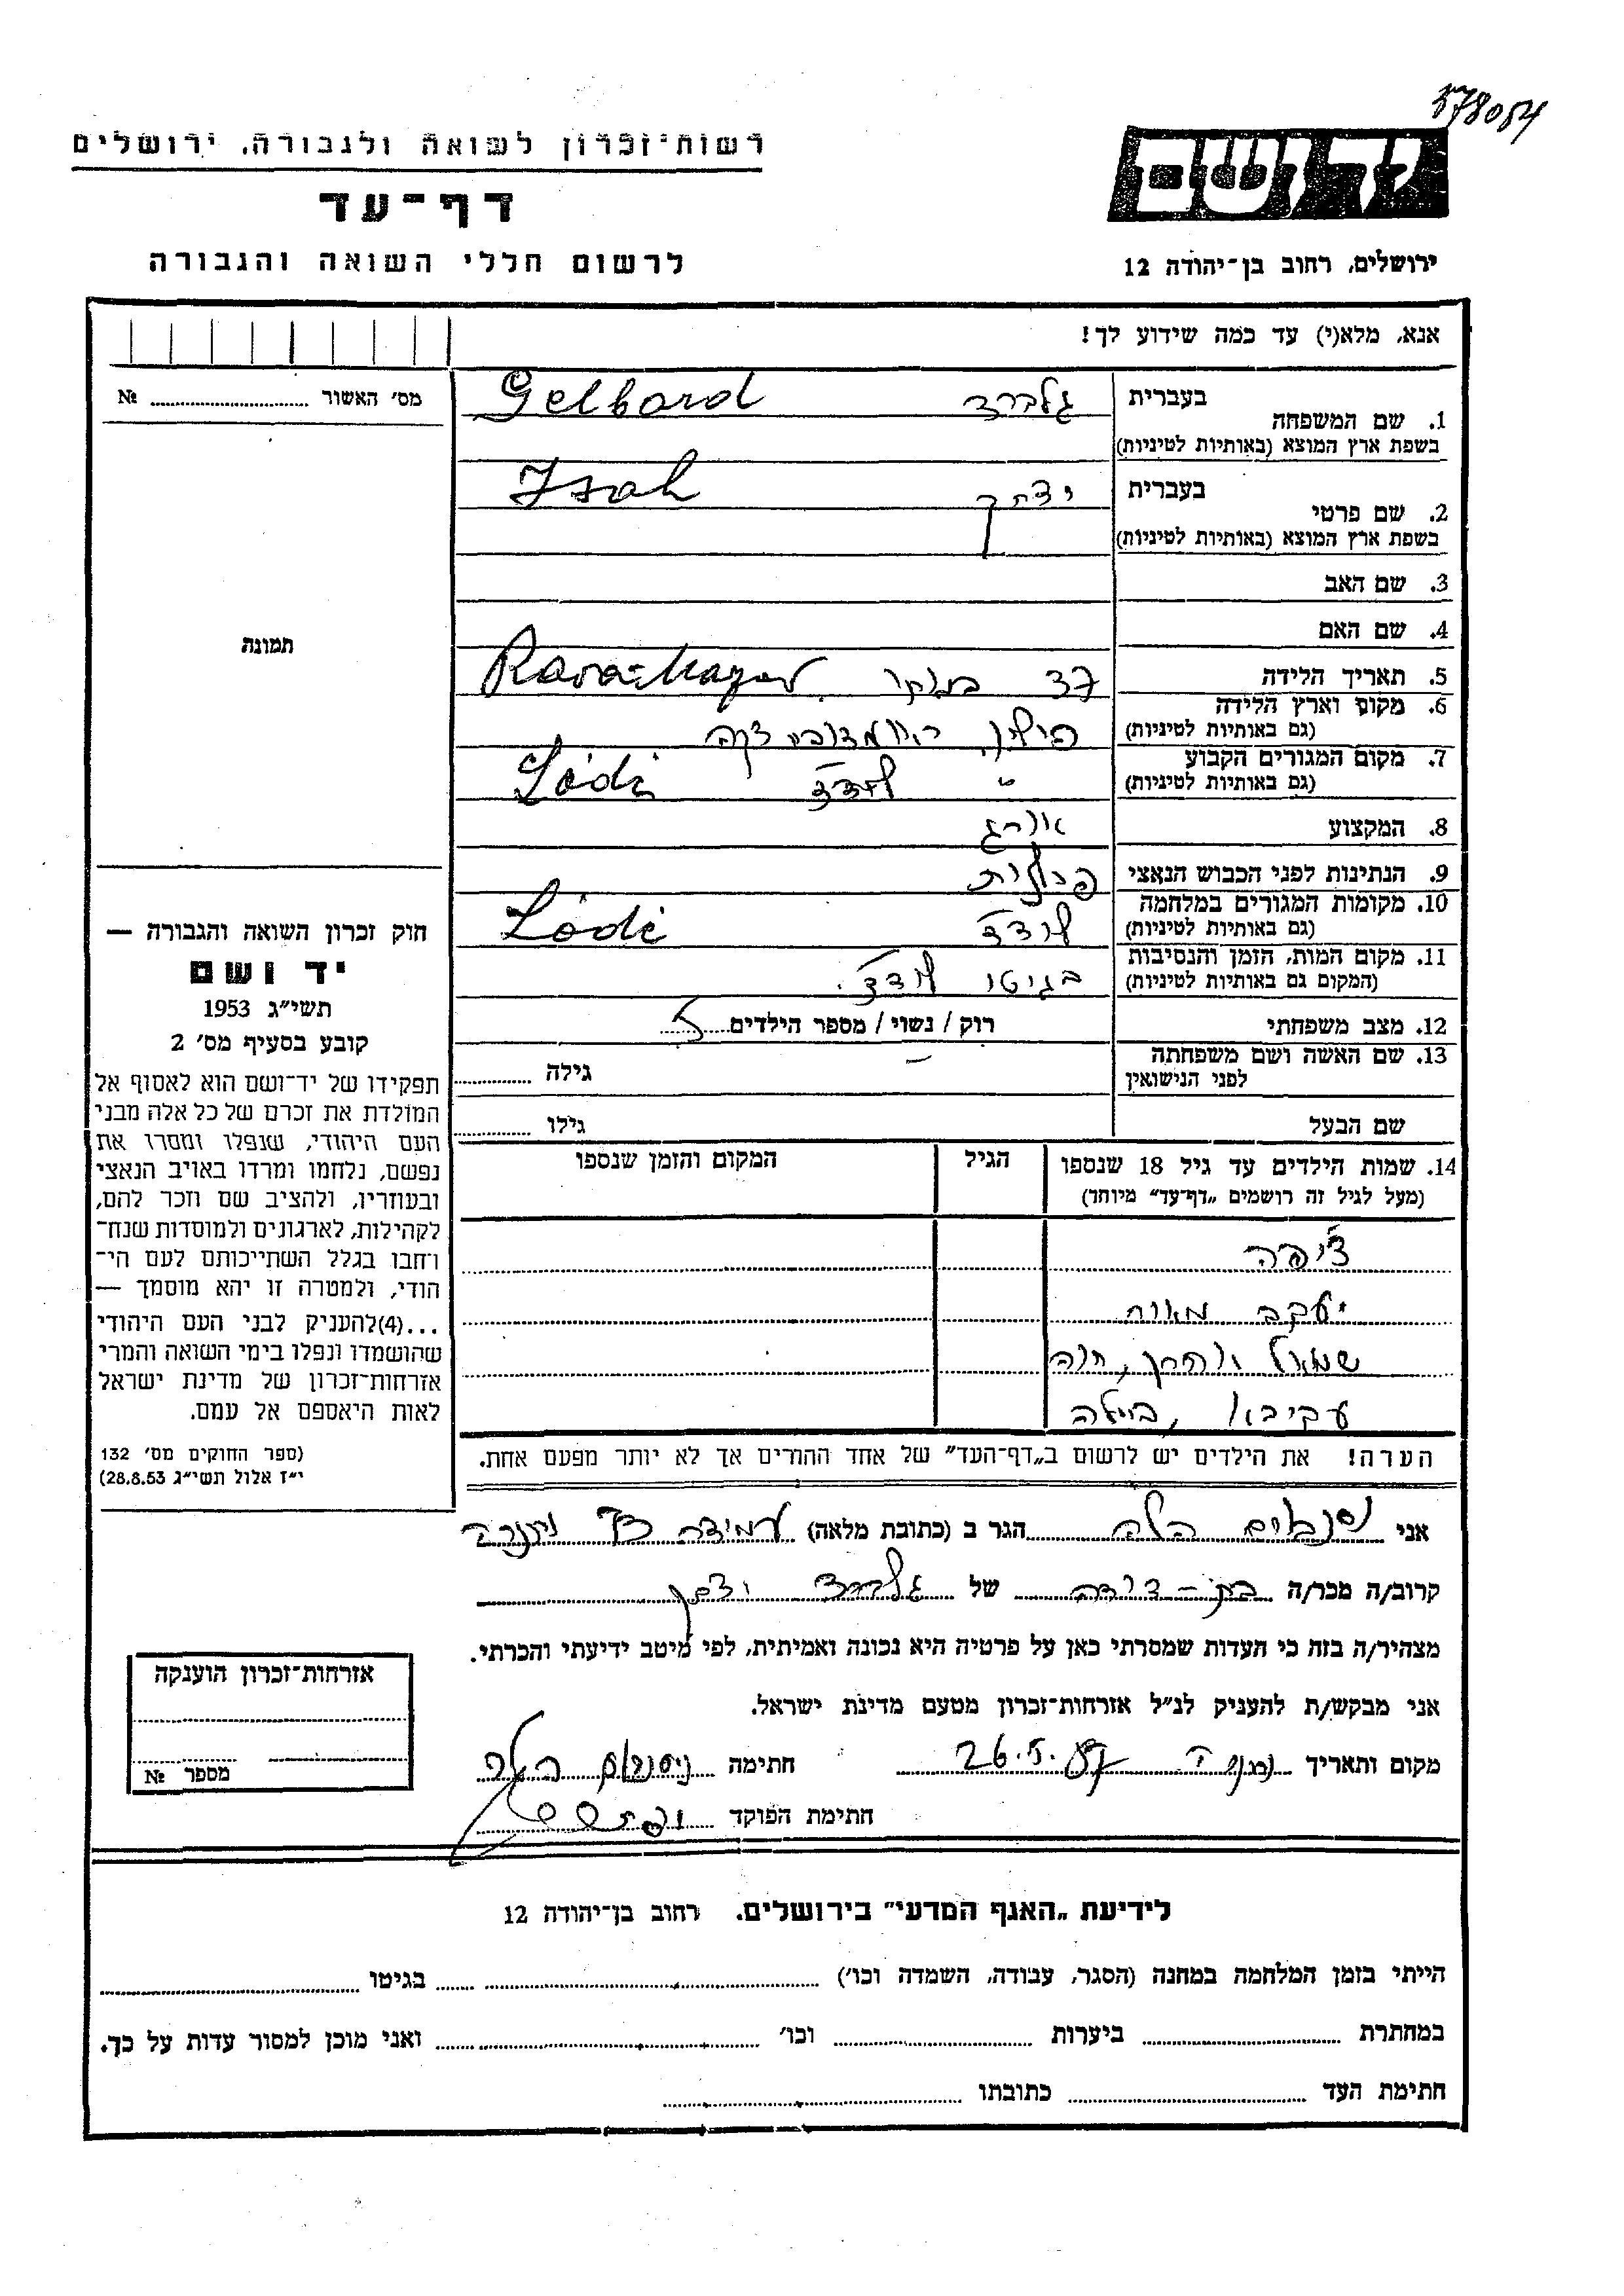 578054
רשות־זכרון לשואה ולגבורה, ירושלים
יד ושם
דף־עד
לרשום חללי השואה והגבורה
ירושלים, רחוב בן־יהודה 12
אנא, מלא(י) עד כמה שידוע לך!
מס׳ האשור № ........
תמונה
1. שם המשפחה בעברית גלברד Gelbard
בשפת ארץ המוצא (באותיות לטיניות)
2. שם פרטי בעברית יצחק Izak
בשפת ארץ המוצא (באותיות לטיניות)
3. שם האב
4. שם האם
5. תאריך הלידה 37
6. מקום וארץ הלידה
(גם באותיות לטיניות) פולין,
7. מקום המגורים הקבוע
(גם באותיות לטיניות) " לודז׳ Lódź
8. המקצוע אורג
9. הנתינות לפני הכבוש הנאצי פולנית
10. מקומות המגורים במלחמה
(גם באותיות לטיניות) לודז׳ Lódź
11. מקום המות, הזמן והנסיבות
(המקום גם באותיות לטיניות) בגיטו לודז׳.
12. מצב משפחתי רוק / נשוי / מספר הילדים
13. שם האשה ושם משפחתה – גילה ........
לפני הנישואין
שם הבעל גילו ........
14. שמות הילדים עד גיל 18 שנספו הגיל המקום והזמן שנספו
(מעל לגיל זה רושמים „דף־עד” מיוחד)
ציפה
יעקב
שמואל אהרן, חוה
עקיבא, ביילה
הערה! את הילדים יש לרשום ב„דף־העד” של אחד ההורים אך לא יותר מפעם אחת.
חוק זכרון השואה והגבורה —
יד ושם
תשי״ג 1953
קובע בסעיף מס׳ 2
תפקידו של יד־ושם הוא לאסוף אל
המולדת את זכרם של כל אלה מבני
העם היהודי, שנפלו ומסרו את
נפשם, נלחמו ומרדו באויב הנאצי
ובעוזריו, ולהציב שם וזכר להם,
לקהילות, לארגונים ולמוסדות שנח־
רחבו בגלל השתייכותם לעם הי־
הודי, ולמטרה זו יהא מוסמך —
...(4)להעניק לבני העם היהודי
שהושמדו ונפלו בימי השואה והמרי
אזרחות־זכרון של מדינת ישראל
לאות היאספם אל עמם.
(ספר החוקים מס׳ 132
י״ז אלול תשי״ג 28.8.53)
אני ניסנבוים הלה הגר ב (כתובת מלאה) עמידר
קרוב/ה מכר/ה בת־דודה של גלברד יצחק
מצהיר/ה בזה כי העדות שמסרתי כאן על פרטיה היא נכונה ואמיתית, לפי מיטב ידיעתי והכרתי.
אני מבקש/ת להעניק לנ״ל אזרחות־זכרון מטעם מדינת ישראל.
מקום ותאריך 26.5.57 חתימה ניסנבוים הלה
חתימת הפוקד
אזרחות־זכרון הוענקה
מספר №
לידיעת „האגף המדעי” בירושלים. רחוב בן־יהודה 12
הייתי בזמן המלחמה במחנה (הסגר, עבודה, השמדה וכו׳) ........ בגיטו ........
במחתרת ........ ביערות ........ וכו׳ ........ ואני מוכן למסור עדות על כך.
חתימת העד ........ כתובתו ........